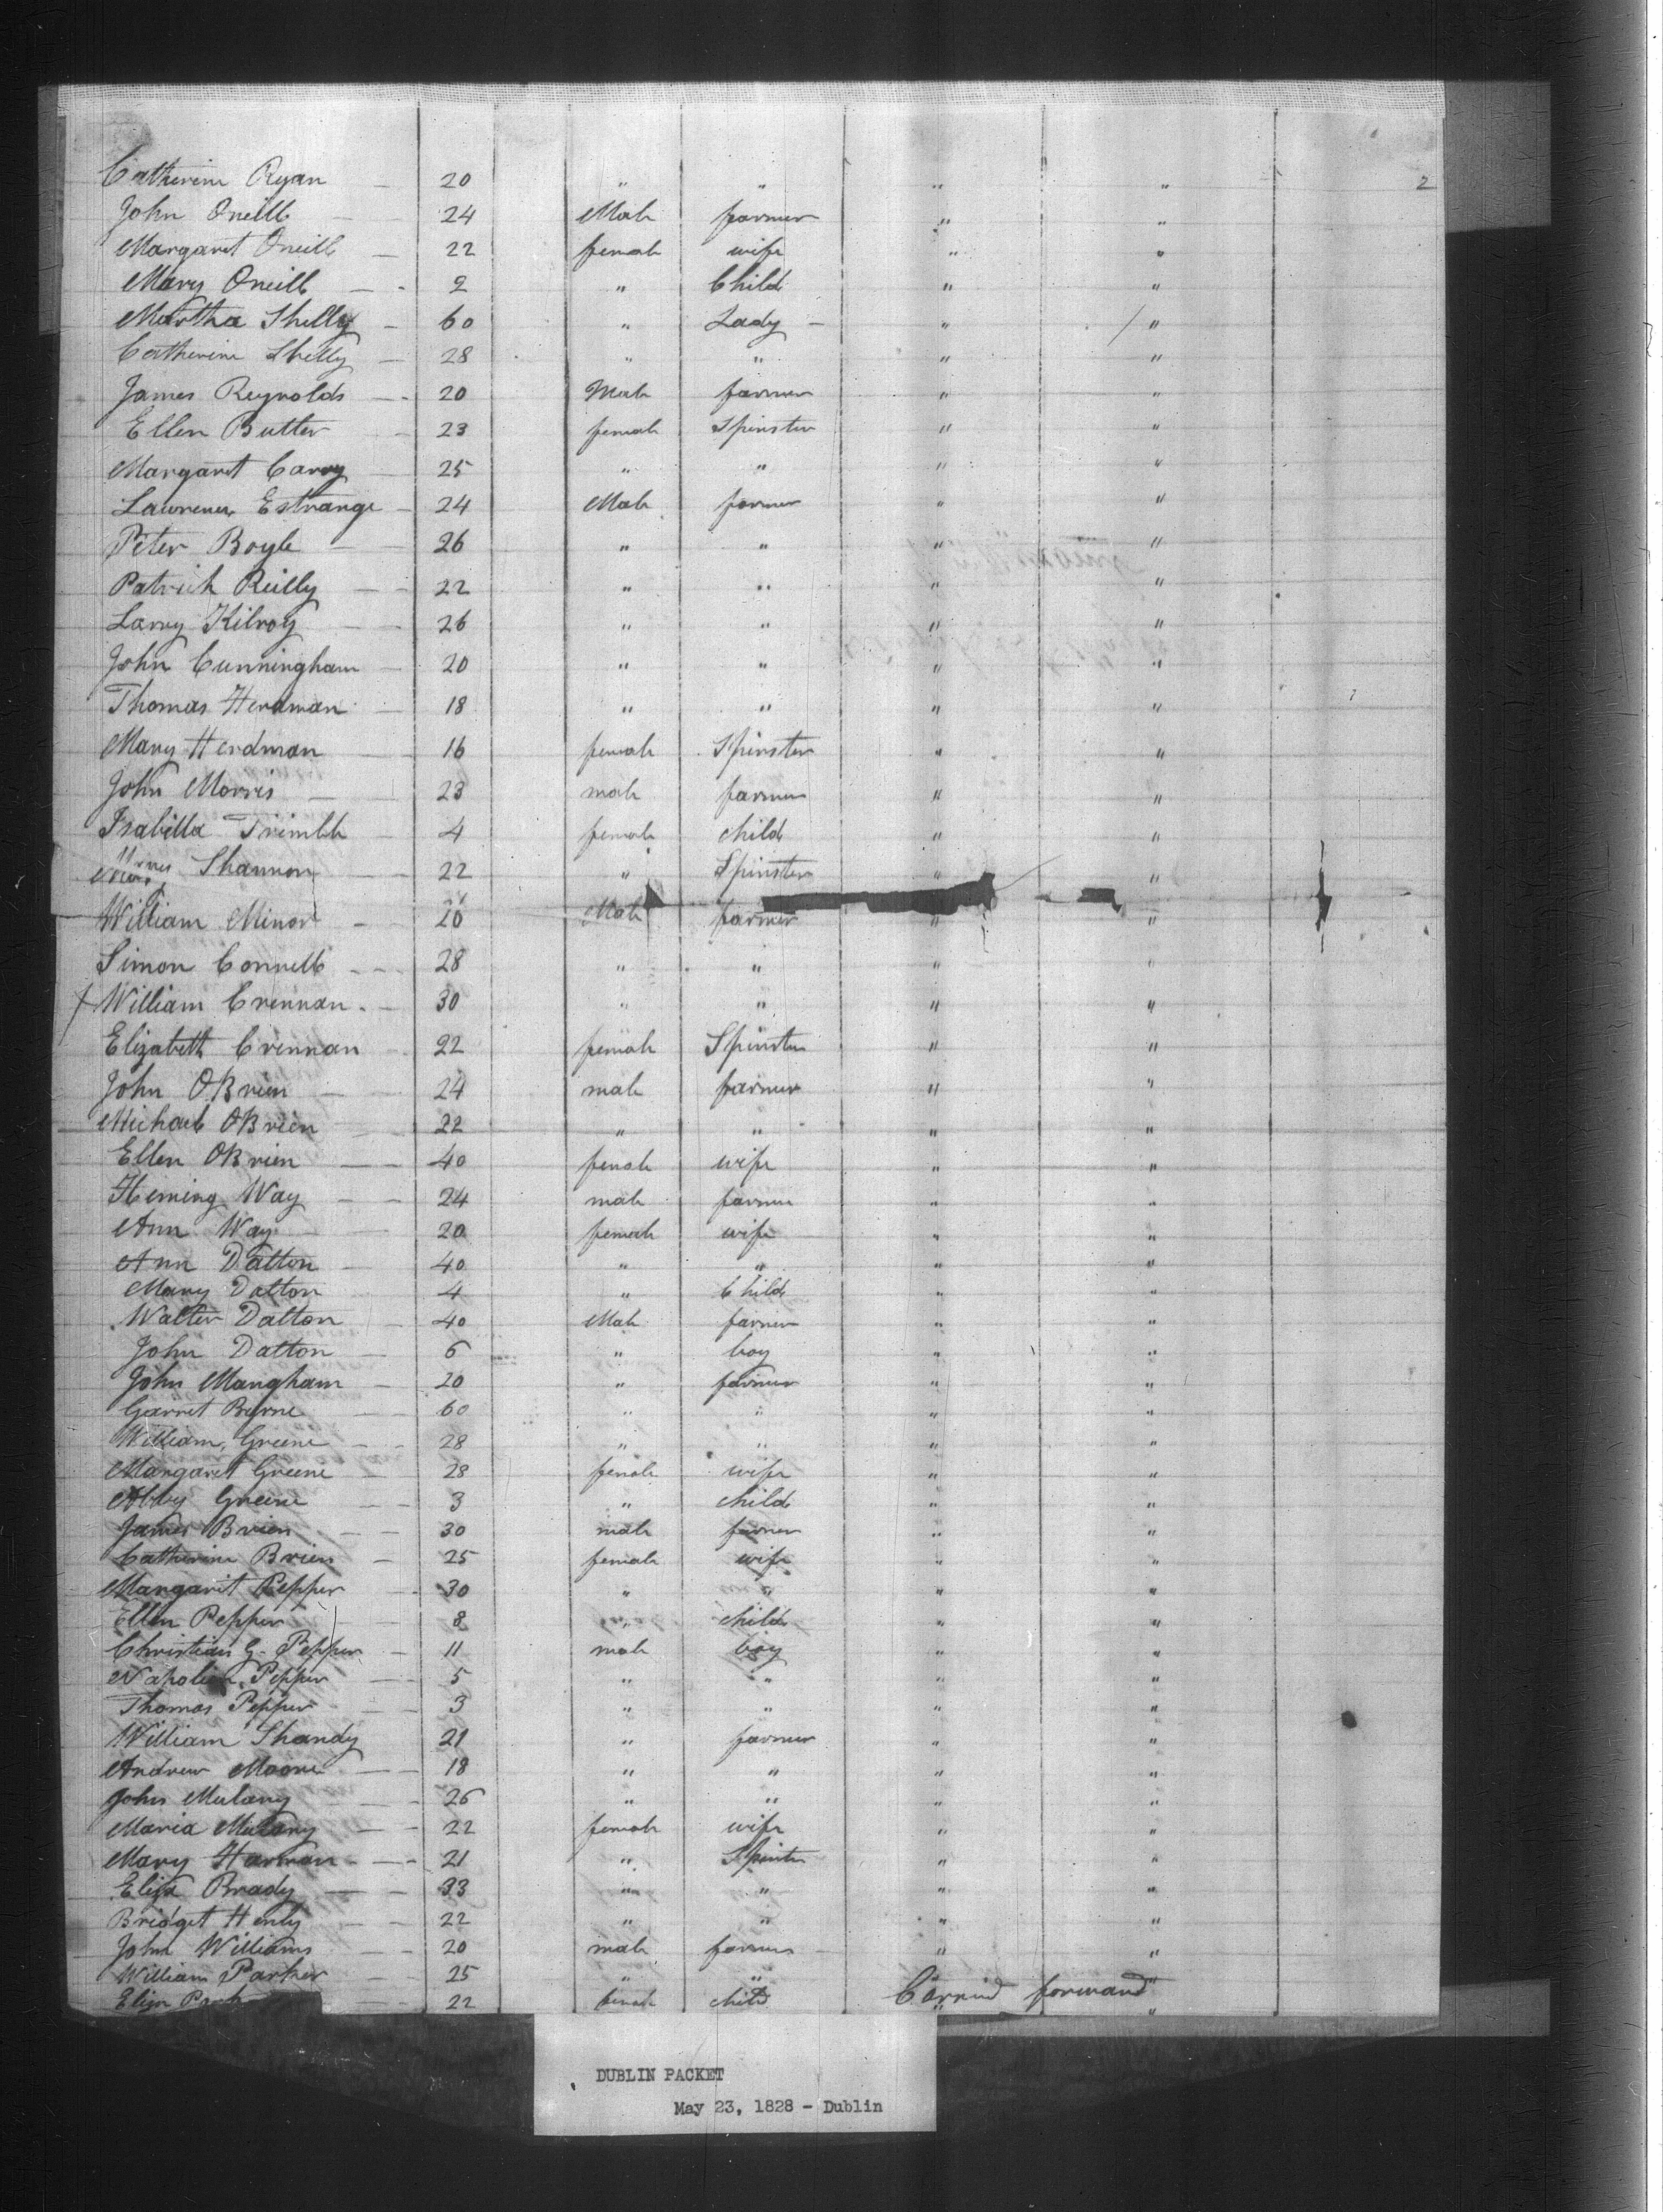 2
Catherine Ryan — 20 " " " "
John Oneill — 24 Male farmer " "
Margaret Oneill — 22 female wife " "
Mary Oneill — 2 " Child " "
Martha Shelly — 60 " Lady — " / "
Catherine Shelly — 28 " " " "
James Reynolds — 20 Male farmer " "
Ellen Butler — 23 female Spinster " "
Margaret Carry 25 " " " "
Lawrence Estrange — 24 Male farmer " "
Peter Boyle — 26 " " " "
Patrick Reilly — 22 " " " "
Larry Kilroy — 26 " " " "
John Cunningham — 20 " " " "
Thomas Herdman — 18 " " " "
Mary Herdman — 16 female Spinster " "
John Morris — 23 male farmer " "
Isabella Trimble — 4 female child " "
Shannon 22 " Spinster " "
William Minor — 20 Male farmer " "
Simon Connell — 28 " " " "
William Crennan — 30 " " " "
Elizabeth Crennan 22 female Spinster " "
John OBrien — 24 male farmer " "
Michael OBrien — 22 " " " "
Ellen OBrien — 40 female wife " "
Heming Way — 24 male farmer " "
Ann Way — 20 female wife " "
Ann Dalton — 40 " " " "
Mary Dalton 4 " Child " "
Walter Dalton — 40 Male farmer " "
John Dalton — 6 " boy " "
John Mangham — 20 " farmer " "
Garret Byrne — 60 " " " "
William Greene — 28 " " " "
Margaret Greene — 28 female wife " "
Abby Greene — 3 " child " "
James Brien — 30 male farmer " "
Catherine Brien — 25 female wife " "
Margarit Pepper — 30 " " " "
Ellen Pepper 8 " child " "
Christian G. Pepper — 11 male boy " "
Napoleon Pepper — 5 " " " "
Thomas Pepper — 3 " " " "
William Shandy 21 " farmer " "
Andrew Moore — 18 " " " "
John Mulany — 26 " " " "
Maria Mulany — 22 female wife " "
Mary Harman — 21 " Spinster " "
Eliza Brady — 33 " " " "
Bridget Henly — 22 " " " "
John Williams — 20 male farmer " "
William Parker — 25 " " " "
Eliza 22 female child " "
Carried forward
DUBLIN PACKET
May 23, 1828 - Dublin